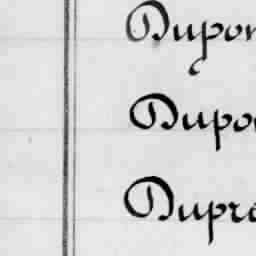 Dupon
Dupo
Dupré